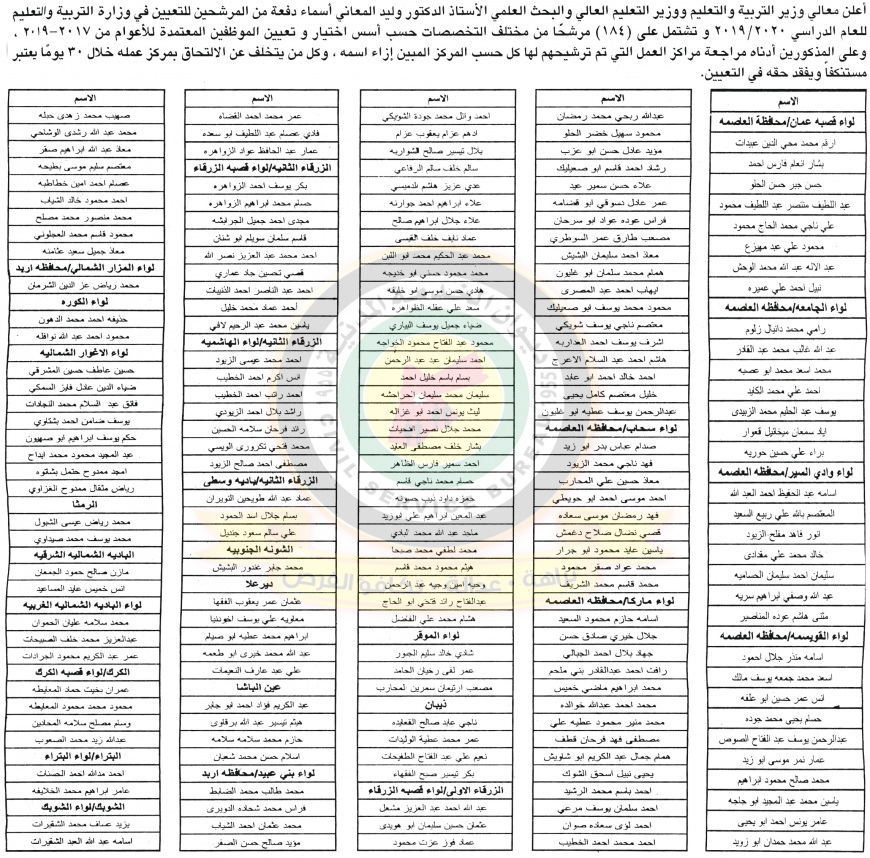 أعلن معالي وزير التربية والتعليم ووزير التعليم العالي والبحث العلمي الأستاذ الدكتور وليد المعاني أسماء دفعة من المرشحين للتعيين في وزارة التربية والتعليم
للعام الدراسي ٢٠١٩/٢٠٢٠ و تشتمل على (١٨٤) مرشحًا من مختلف التخصصات حسب أسس اختيار و تعيين الموظفين المعتمدة للأعوام من ٢٠١٧-٢٠١٩ ،
وعلى المذكورين أدناه مراجعة مراكز العمل التي تم ترشيحهم لها كل حسب المركز المبين إزاء اسمه ، وكل من يتخلف عن الالتحاق بمركز عمله خلال ٣٠ يومًا يعتبر
مستنكفاً ويفقد حقه في التعيين.
الاسم
لواء قصبه عمان/محافظة العاصمه
ارقم محمد محي الدين عبيدات
بشار انعام فارس احمد
حسن جبر حسن الحلو
عبد اللطيف منتصر عبد اللطيف محمود
علي ناجي محمد الحاج محمود
محمود علي عبد مهيزع
عبد الاله عبد الله محمد الوحش
نبيل احمد علي عميره
لواء الجامعه/محافظه العاصمه
رامي محمد دانيال زلوم
عبد الله غالب محمد عبد القادر
محمد اسعد محمد ابو عصبه
احمد علي محمد الكايد
يوسف عبد الحليم محمد الزبيدى
اياد سمعان ميخائيل قعوار
براء علي حسين حوريه
لواء وادي السير/محافظه العاصمه
اسامه عبد الحفيظ احمد العبد الله
المعتصم بالله علي ربيع السعيد
انور فاهد مفلح الزيود
خالد محمد علي مقدادى
سليمان احمد سليمان الصماميه
عبد الله وصفي ابراهيم سريه
مثنى هاشم عوده المناصير
لواء القويسمه/محافظه العاصمه
اسامه منذر جلال احمود
اسعد محمد جمعه يوسف مالك
انس عمر حسين ابو عطفه
حسام يحيى محمد جوده
عبدالرحمن يوسف عبد الفتاح الصوص
عمار نمر موسى ابو زيد
محمد صالح محمود ابراهيم
ياسين محمد عبد المجيد ابو جاجه
عامر يونس احمد ابو يحيى
عبد الله محمد حمدان ابو زويد
الاسم
عبدالله ربحي محمد رمضان
محمود سهيل خضر الحلو
مؤيد عادل حسن ابو عزب
رشاد احمد قاسم ابو صعيليك
علاء حسن سمير عيد
عمر عادل دسوقي ابو قضامه
فراس عوده عواد ابو سرحان
مصعب طارق عمر السوطري
معاذ احمد سليمان البشيش
همام محمد سلمان ابو غليون
ايهاب احمد عبد المصرى
محمود محمد يوسف ابو صعيليك
معتصم ناجي يوسف شويكي
اشرف يوسف احمد العداربه
هاشم احمد عبد السلام الاعرج
احمد خالد احمد ابو عابد
خليل معتصم كامل يحيى
عبدالرحمن يوسف عطيه ابو غليون
لواء سحاب/محافظه العاصمه
صدام عباس بدر ابو زيد
فهد ناجي محمد الزيود
معاذ حسين علي المحارب
احمد موسى احمد ابو حويطي
فهد رمضان موسى سعاده
قصي نضال صلاح دغمش
ياسين عايد محمود ابو جرار
محمد عواد صقر محمود
محمد قاسم محمد الشريف
لواء ماركا/محافظه العاصمه
اسامه حازم محمود السعيد
جلال خيري صادق حسن
جهاد بلال احمد الجبالي
رافت احمد عبدالقادر بني ملحم
محمد ابراهيم ماضي خميس
محمد احمد عبدالله خوالده
محمد منير محمود عطيه علي
مصطفى فهد فرحان قطف
همام جمال عبد الكريم ابو شاويش
يحيى نبيل اسحق الشوك
احمد باسم محمد الرشيد
احمد سلمان يوسف مرعي
احمد لؤى سعاده صوان
احمد محمد احمد الخطيب
الاسم
احمد وائل محمد جودة الشويكي
ادهم عزام يعقوب عزام
بلال تيسير صالح الشواربه
سالم خلف سالم الرفاعي
عدي عزيز هاشم بلدميسي
علاء ابراهيم احمد جوارنه
علاء جلال ابراهيم صالح
عماد نايف خلف القيسى
محمد عبد الحكيم محمد ابو اللبن
محمد محمود حسني ابو خديجه
هادي حسن موسى ابو خليفه
سعد علي عقله الظواهره
ضياء جميل يوسف البياري
محمود عبد الفتاح محمود الخواجه
احمد سليمان عبد عبد الرحمن
بسام باسم خليل احمد
سليمان محمد سليمان الحراحشه
ليث يونس احمد ابو غزاله
محمد جلال نصير الفحيات
بشار خلف مصطفى العايد
احمد سمير فارس الظاهر
حسام محمد ناجي قاسم
حمزه داود ذيب حسونه
عبد المعين ابراهيم علي ابوزيد
ماجد عبد الله محمد لبادي
محمد لطفي محمد صبحا
هيثم محمود محمد قاسم
وحيه امين وحيه عبد الرحمن
عبدالفتاح رائد فتحي ابو الحاج
هشام محمد علي الفاضل
لواء الموقر
شادي خالد سليم الجبور
عمر لفى رخيان الحامد
مصعب ارتيمان سمرين المحارب
ذيبان
ناجي عابد صالح القعايده
عمر محمد عطية الوليدات
نعيم علي عبد الفتاح الطفيحات
بكر تيسير صبح الفقهاء
الزرقاء الاولى/لواء قصبه الزرقاء
عبد الله احمد عبد العزيز مشعل
عثمان حسين سليمان ابو هويدى
عماد فوز عزت محمود
الاسم
عمر محمد احمد القضاه
فادي عصام عبد اللطيف ابو سعده
عمار عبد الحافظ عواد الزواهره
الزرقاء الثانيه/لواء قصبه الزرقاء
بكر يوسف احمد الزواهره
حسام محمد ابراهيم الزواهره
مجدى احمد جميل الجرابشه
قاسم سلمان سويلم ابو شنان
احمد محمد عبد العزيز نصر الله
قصي تحسين جاد عماري
احمد عبد الناصر احمد الذنيبات
أحمد عماد محمد خليل
ياسين محمد عبد الرحيم لافي
الزرقاء الثانيه/لواء الهاشميه
احمد محمد عيسى الزيود
انس اكرم احمد الخطيب
احمد راتب احمد الخطيب
راشد بلال احمد الزيودي
رائد فرحان سلامه الحسين
محمد فتحي تكروري الويمي
مصطفى احمد صالح الزيود
الزرقاء الثانيه/باديه وسطى
عماد عبد الله طويحين النويران
بسام جلال اسد الحمود
علي سالم سعود جنديل
الشونه الجنوبيه
محمد جابر غندور البشيش
ديرعلا
عثمان عمر يعقوب الفقها
معاويه علي يوسف اخوذنيا
ابراهيم محمد عطيه ابو صيام
عبد الله محمد خيرى ابو طعمه
علي عبد عارف النعيمات
عين الباشا
عبد الكريم فؤاد احمد ابو جابر
هيثم تيسير عبد الله برقاوى
حازم محمد سلامه سلامه
اسلام حسن محمد شعبان
لواء بني عبيد/محافظه اربد
محمد طالب محمد الضابط
فراس محمد شحاده الدويرى
محمد عثمان احمد الشياب
مؤيد صالح حسن الصقر
الاسم
صهيب محمد زهدى حبله
محمد عبد الله رشدى الوشاحي
معاذ عبد الله ابراهيم صقر
معتصم سليم موسى بطيحه
عصام احمد امين خطاطبه
احمد محمود خالد الشياب
محمد منصور محمد مصلح
محمود قاسم محمد العجلوني
معاذ جميل سعيد عثامنه
لواء المزار الشمالي/محافظه اربد
محمد رياض عز الدين الشرمان
لواء الكوره
حذيفه احمد محمد الدهون
محمود احمد عبد الله نوافله
لواء الاغوار الشماليه
حسين عاطف حسين المشرقي
ضياء الدين عادل فايز السمكي
فائق عبد السلام محمد النجادات
يوسف ضامن احمد بشتاوي
حكم يوسف ابراهيم ابو صهيون
عبد المجيد محمود محمد ابداح
امجد ممدوح حتمل بشاتوه
رياض مثقال ممدوح الغزاوي
الرمثا
محمد رياض عيسى الشبول
محمد يوسف محمد صيداوي
الباديه الشماليه الشرقيه
مازن صالح حمود الجمعان
انس خميس عايد المساعيد
لواء الباديه الشماليه الغربيه
محمد سلامه عليان الحموان
عبدالعزيز محمد خلف الصبيحات
عمر عبد الكريم محمود الجرادات
الكرك/لواء قصبه الكرك
عمران بخيت حماد المعايطه
محمود محمد محمود المعايطه
وسام مصلح سلامه المحادين
عبدالله زيد محمد الصعوب
البتراء/لواء البتراء
احمد مدالله احمد الحسنات
عامر ابراهيم محمد الخلايفه
الشوبك/لواء الشوبك
يزيد عساف محمد الشقيرات
اسامه عبد الله العبد الشقيرات
ديوان الخدمة المدنية
١٩٥٥ 1955
CIVIL SERVICE BUREAU
نزاهة - عدالة - تكافؤ الفرص